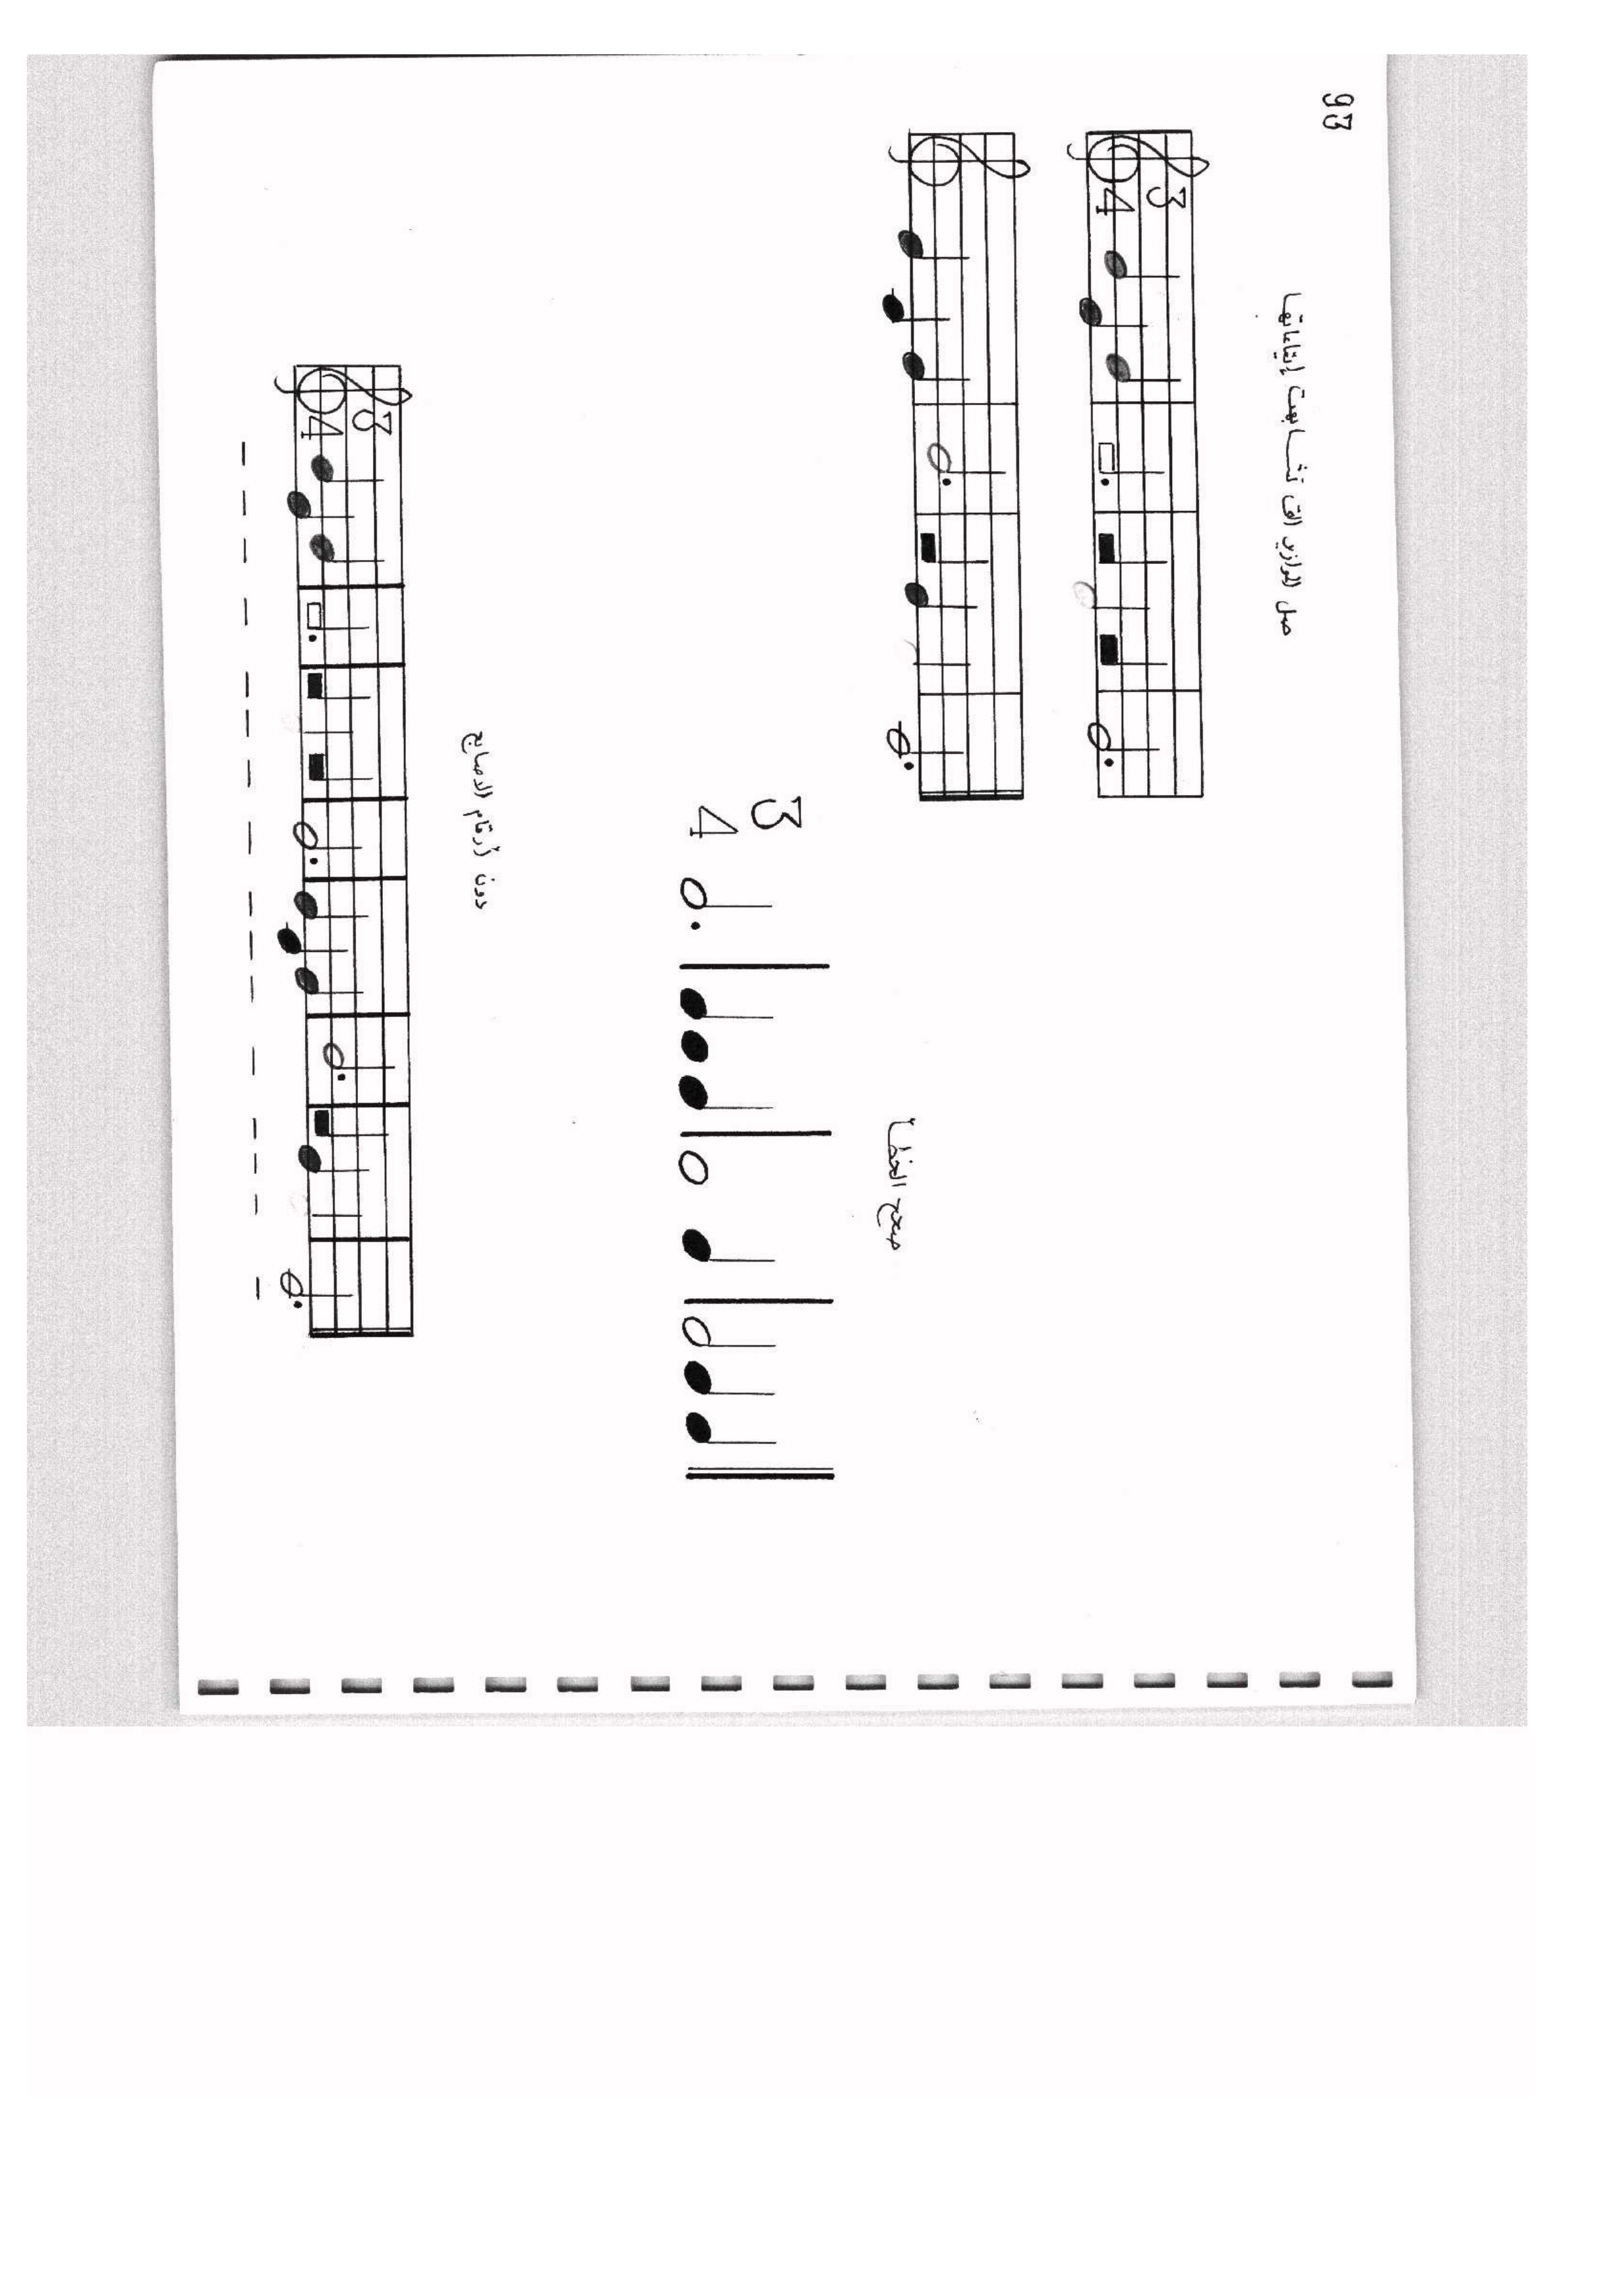 93
صل الموازير التي تشابهت إيقاعاتها
3
4
صحح الخطأ
3
4
دون أرقام الاصابع
3
4